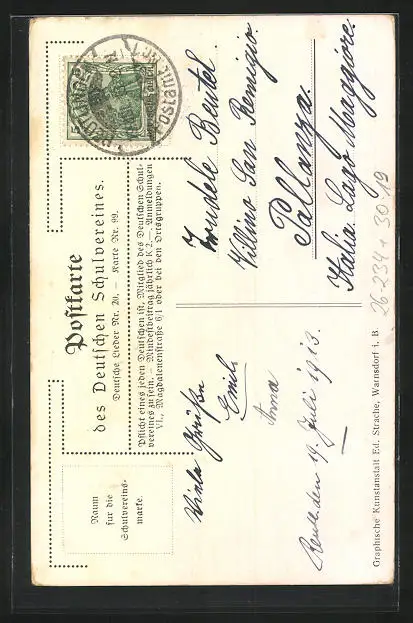 Postkarte
des Deutschen Schulvereines.
Deutsche Lieder Nr. 20. — Karte Nr. 99.
Pflicht eines jeden Deutschen ist, Mitglied des Deutschen Schul-
vereines zu sein. — Mindestbeitrag jährlich K 2.—. Anmeldungen
VI., Magdalenenstraße 6/I oder bei den Ortsgruppen.
Raum
für die
Schulvereins-
marke.
5
REUTLINGEN
Viele Grüße
Emil
Anna
14 Juli 1913.
Beutel
Villino San Remigio.
Pallanza.
Italia Lago Maggiore.
26-234+30.19
Graphische Kunstanstalt Ed. Strache, Warnsdorf i. B